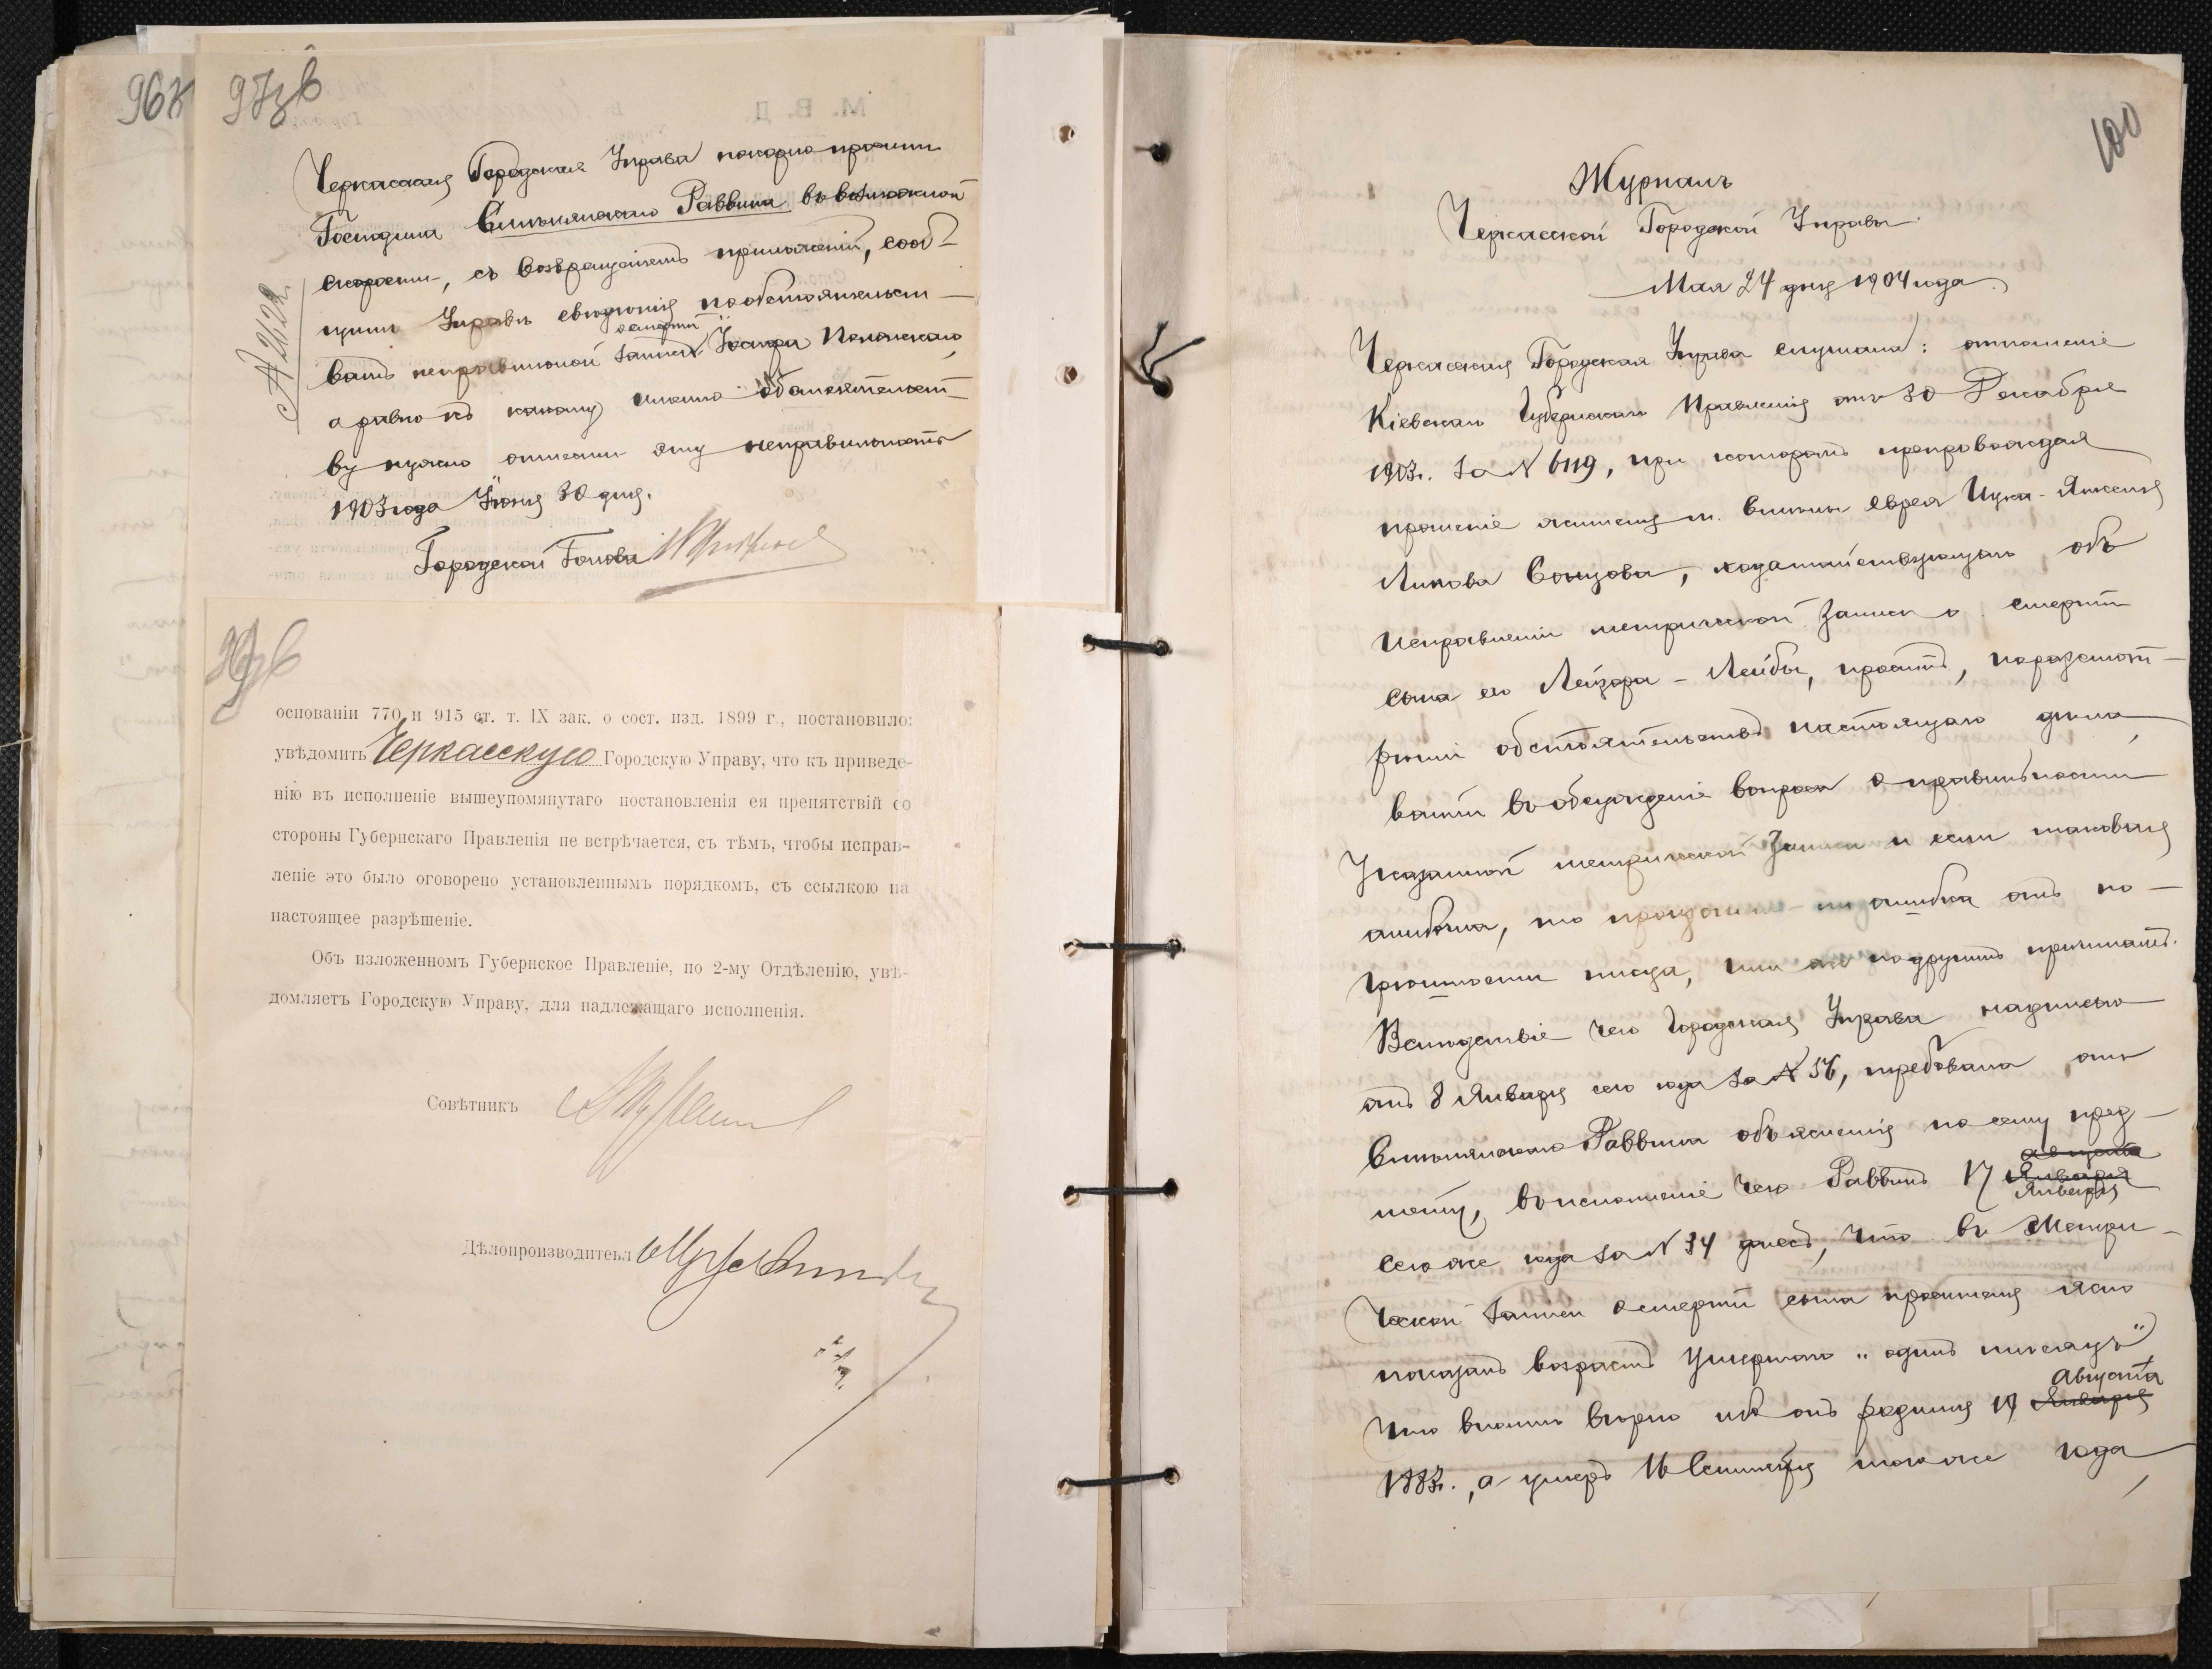 96
97зв
Черкасская Городская Управа покорно проситъ
Господина Смѣлянскаго Раввина въ возможной
скорости, съ возвращеніемъ приложеній, сооб-
щить Управѣ свѣдѣнія по обстоятельст-
вамъ неправильной записи о смерти Іосифа Полонскаго,
а равно къ какому именно обстоятельст-
ву нужно отнести эту неправильность
1903 года Іюня 30 дня.
Городской Голова
№ 2122
основаніи 770 и 915 ст. т. IX зак. о сост. изд. 1899 г., постановило:
увѣдомить Черкасскую Городскую Управу, что къ приведе-
нію въ исполненіе вышеупомянутаго постановленія ея препятствій со
стороны Губернскаго Правленія не встрѣчается, съ тѣмъ, чтобы исправ-
леніе это было оговорено установленнымъ порядкомъ, съ ссылкою на
настоящее разрѣшеніе.
Объ изложенномъ Губернское Правленіе, по 2-му Отдѣленію, увѣ-
домляетъ Городскую Управу, для надлежащаго исполненія.
Совѣтникъ
Дѣлопроизводитеьл
100
Журналъ
Черкасской Городской Управы
Мая 24 дня 1904 года.
Черкасская Городская Управа слушала: отношеніе
Кіевскаго Губернскаго Правленія отъ 30 Декабря
1903г. за № 6119, при которомъ препровождая
прошеніе жителя м. Смѣлы еврея Ицка-Янкеля
Липова Сонцова, ходатайствующаго объ
исправленіи метрической записи о смерти
сына его Лейзора-Лейбы, проситъ, по разсмот-
рѣніи обстоятельствъ настоящаго дѣла,
войти въ обсужденіе вопроса о правильности
указанной метрической записи и если таковая
ошибочна, то произошла-ли ошибка отъ по-
грѣшности писца, или же по другимъ причинамъ.
Вслѣдствіе чего Городская Управа надписью
отъ 8 Января сего года за № 56, требовала отъ
Смѣлянскаго Раввина объясненія по сему пред-
мету, во исполненіе чего Раввинъ 17 Января
сего же года за № 34 донесъ, что въ Метри-
ческой записи о смерти сына просителя ясно
показанъ возрастъ умершаго "одинъ мѣсяцъ"
что вполнѣ вѣрно ибо онъ родился 17 Августа
1883г., а умеръ 16 Сентября того же года,